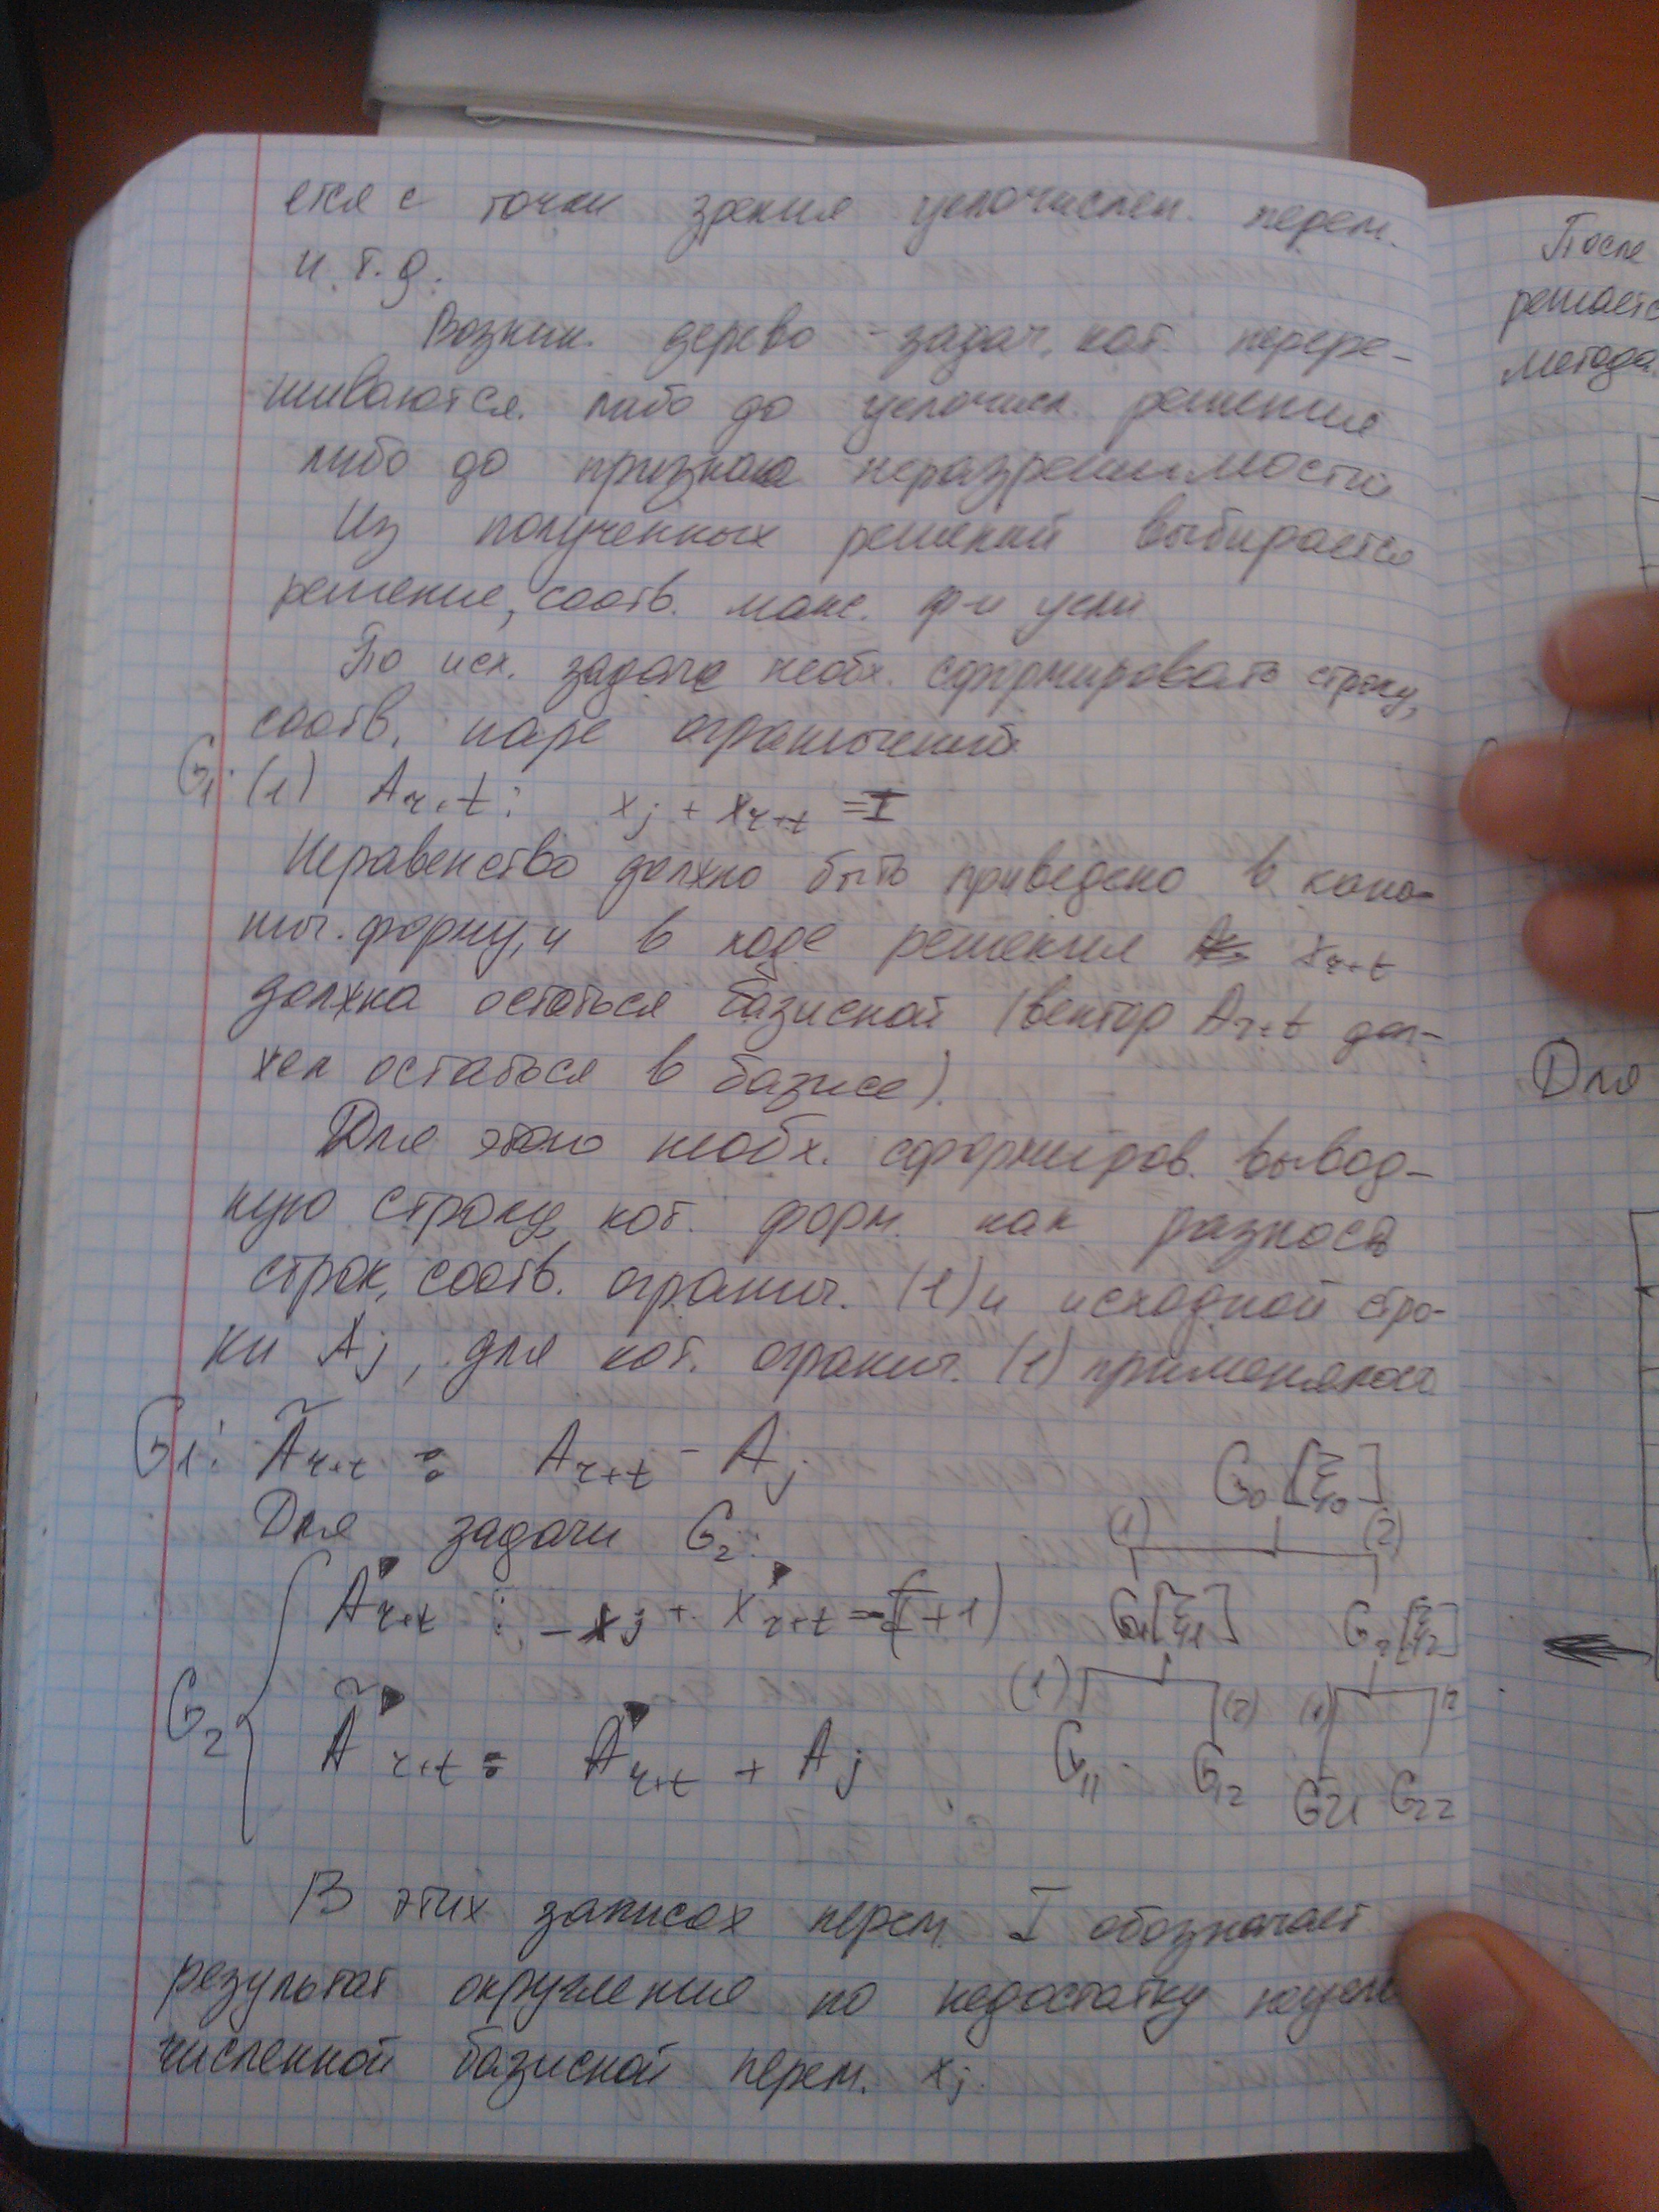 ется с точки зрения целочислен. перем.
и.т.д.
Возник. дерево задач, кот. перере-
шиваются либо до целочисл. решения
либо до признака неразрешимости
Из полученных решений выбирается
решение, соотв. макс. ф-и цели
По исх. задаче необх. сформировать строку,
соотв. паре ограничений
G1: (1) Ar+t: xj + xr+t = I
Неравенство должно быть приведено в кано-
нич. форму, и в ходе решения xr+t
должна остаться базисной (вектор Ar+t дол-
жен остаться в базисе).
Для этого необх. сформиров. вывод-
ную строку, кот. форм. как разность
строк, соотв. огранич. (1) и исходной стро-
ки Aj, для кот. огранич. (1) применялось
G1: Ãr+t = Ar+t - Aj
Для задачи G2:
G2 { Ar+t : -xj + xr+t = -(I+1)
Ãr+t = Ar+t + Aj
G0[ξ0]
(1) (2)
G1[ξ1] G2[ξ2]
(1) (2) (1) (2
G11 G12 G21 G22
В этих записях перем. I обозначает
результат округления по недостатку нецело
численной базисной перем. xj.
После
решаетс
метода
Для